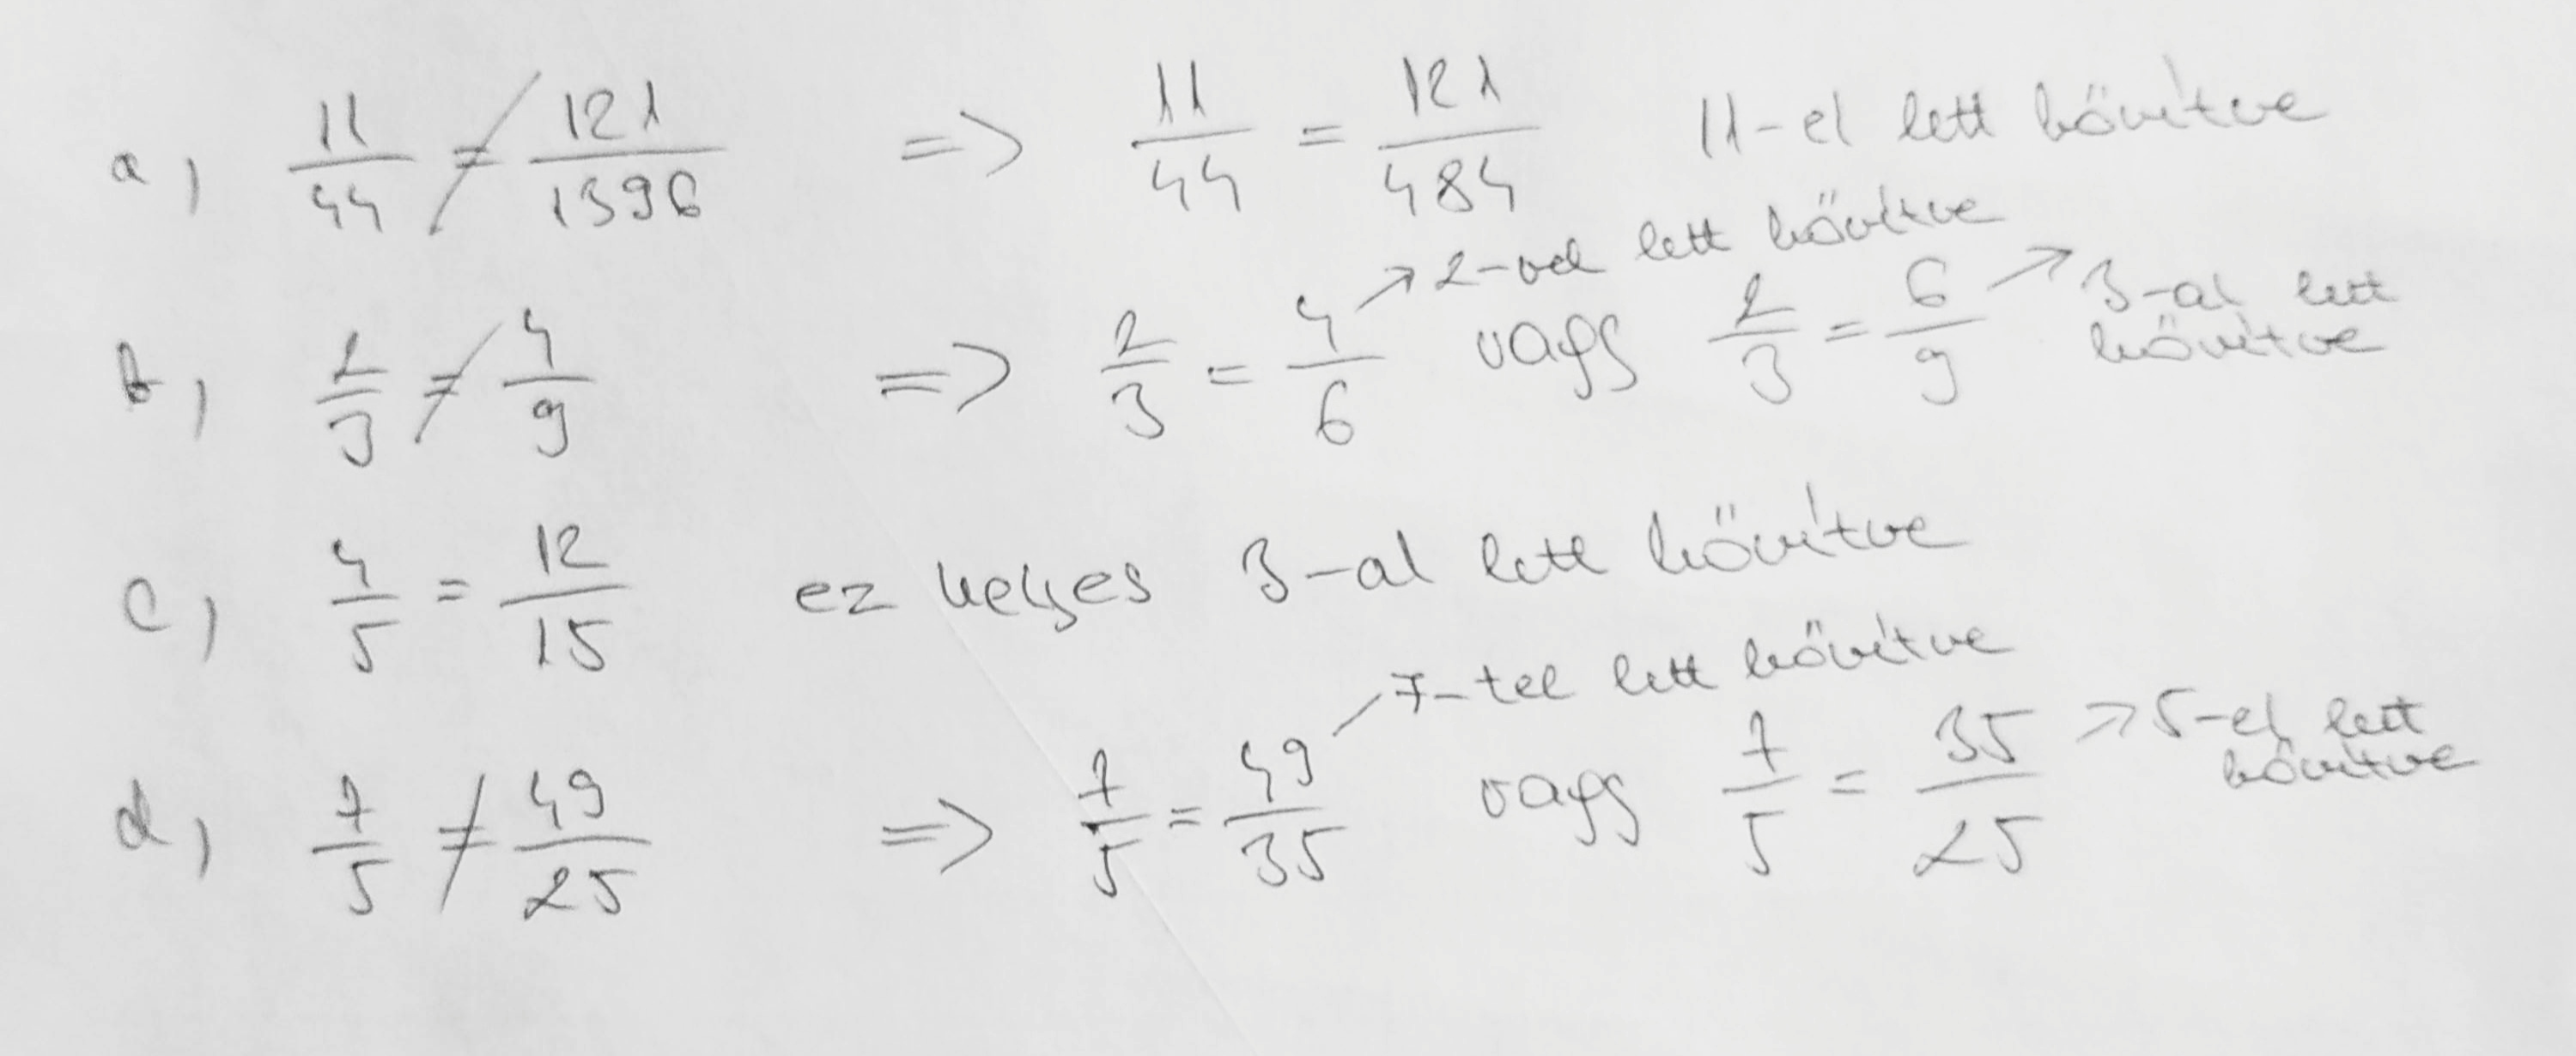 a, 11/44 ≠ 121/1396 => 11/44 = 121/484 11-el lett bővítve
b, 2/3 ≠ 4/9 => 2/3 = 4/6 ↗ 2-vel lett bővítve vagy 2/3 = 6/9 ↗ 3-al lett bővítve
c, 4/5 = 12/15 ez helyes 3-al lett bővítve
d, 7/5 ≠ 49/25 => 7/5 = 49/35 ↗ 7-tel lett bővítve vagy 7/5 = 35/25 -> 5-el lett bővítve